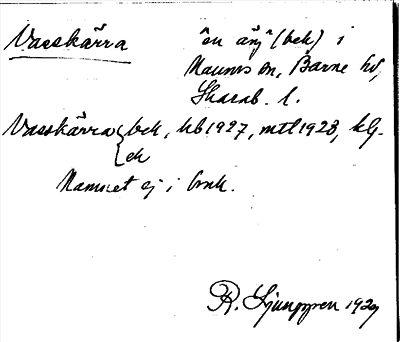 Vasskärra "en äng" (bek) i
Naums sn, Barne hd,
Skarab. l.
Vasskärra { bek, kb 1927, mtl 1928, klj.
ek
Namnet ej i bruk.
R. Ljunggren 1929